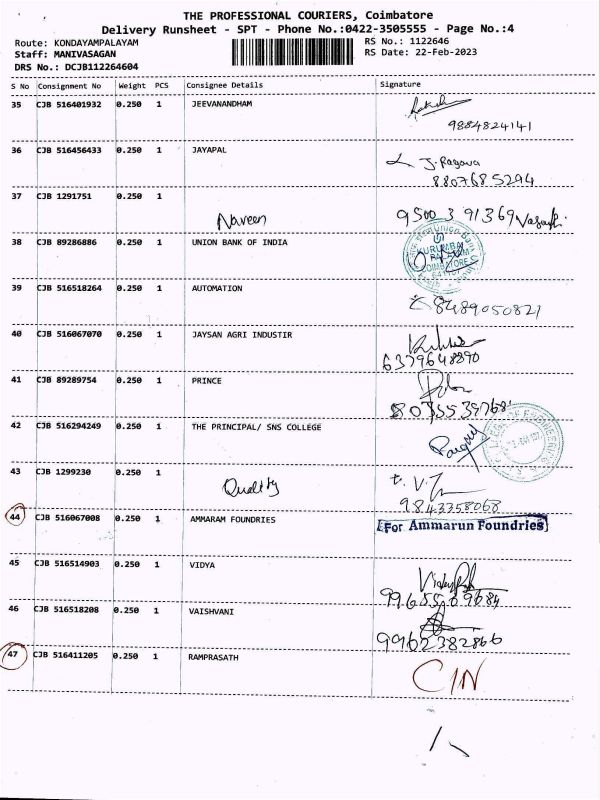 THE PROFESSIONAL COURIERS, Coimbatore
Delivery Runsheet - SPT - Phone No.:0422-3505555 - Page No.:4
Route: KONDAYAMPALAYAM
RS No.: 1122646
Staff: MANIVASAGAN
RS Date: 22-Feb-2023
DRS No.: DCJB112264604
S No Consignment No Weight PCS Consignee Details Signature
35 CJB 516401932 0.250 1 JEEVANANDHAM
9884824141
36 CJB 516456433 0.250 1 JAYAPAL
J. Ragava
8807685294
37 CJB 1291751 0.250 1
Naveen 9500391369
38 CJB 89286886 0.250 1 UNION BANK OF INDIA
39 CJB 516518264 0.250 1 AUTOMATION
8489050821
40 CJB 516067070 0.250 1 JAYSAN AGRI INDUSTIR
6379648890
41 CJB 89289754 0.250 1 PRINCE
42 CJB 516294249 0.250 1 THE PRINCIPAL/ SNS COLLEGE
43 CJB 1299230 0.250 1
Quality
9843358068
44 CJB 516067008 0.250 1 AMMARAM FOUNDRIES For Ammarun Foundries
45 CJB 516514903 0.250 1 VIDYA
9965509684
46 CJB 516518208 0.250 1 VAISHVANI
9962382866
47 CJB 516411205 0.250 1 RAMPRASATH
CIN